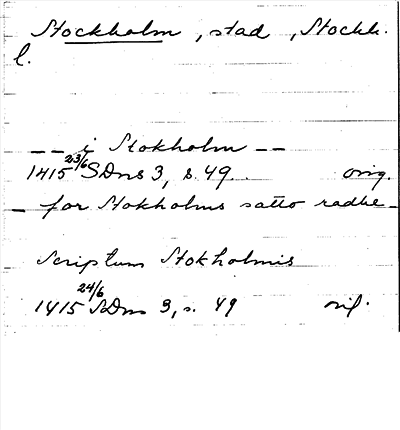 Stockholm, stad, Stockh.
l.
-- i Stokholm --
1415 23/6 SDns 3, s. 49. orig.
- for Stokholms satto radhe -
Scriptum Stokholmis
1415 24/6 SDns 3, s. 49 orig.